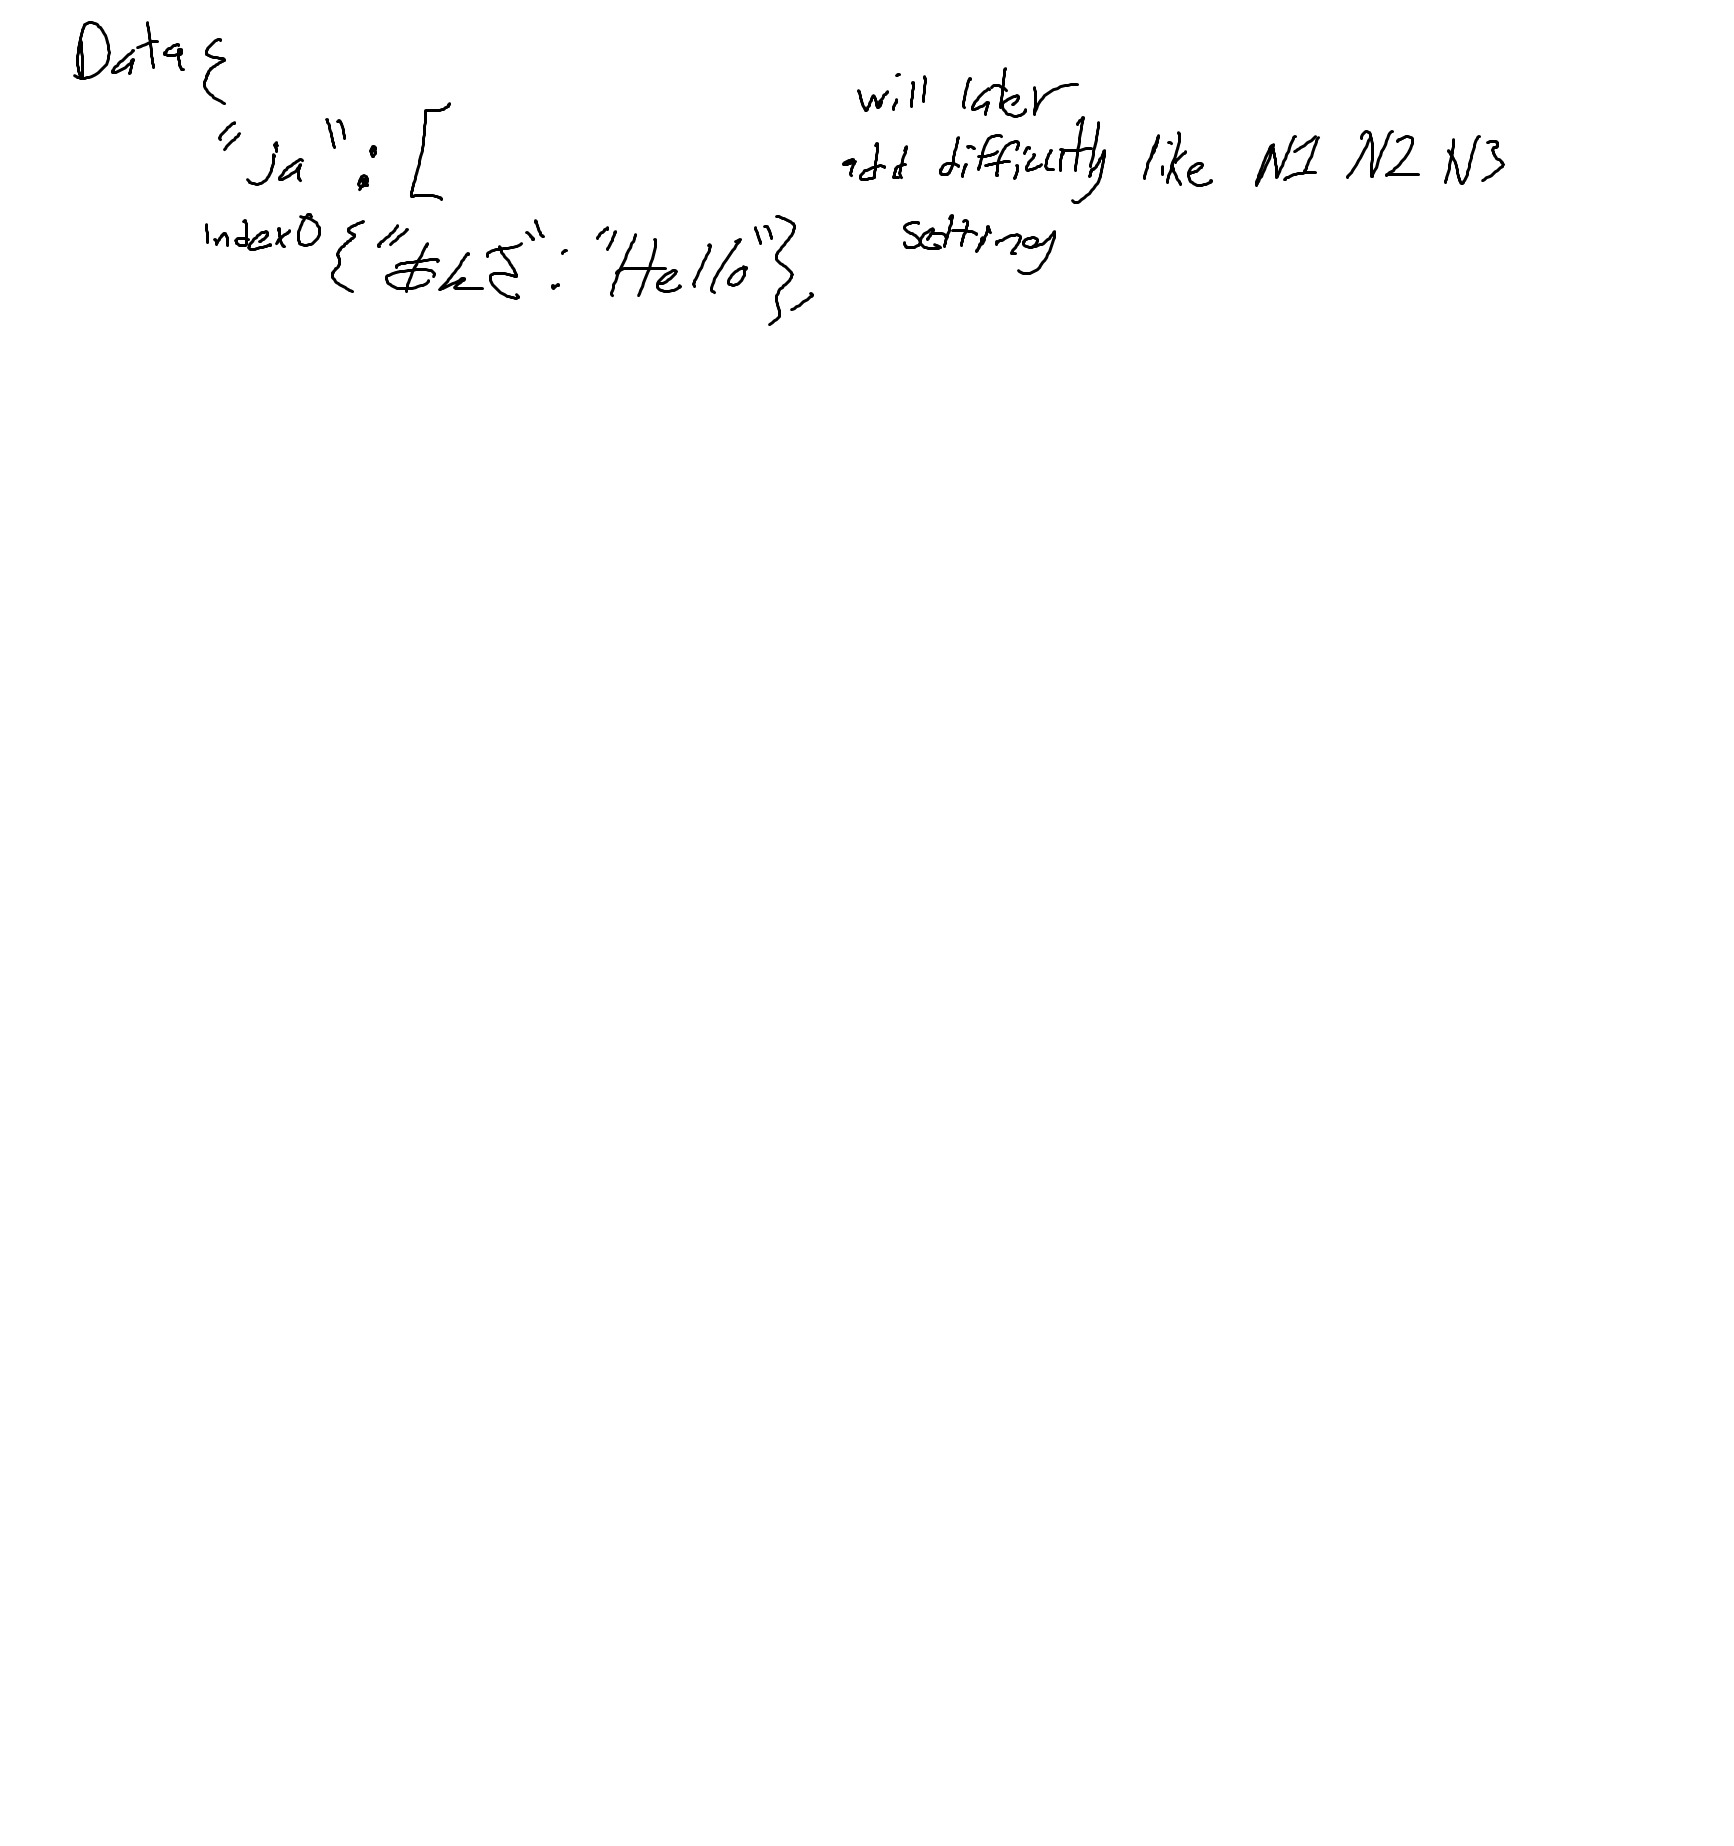 Data {
"ja": [
index0 {"あんこ": "Hello"},
will later
add difficulty like N1 N2 N3
setting